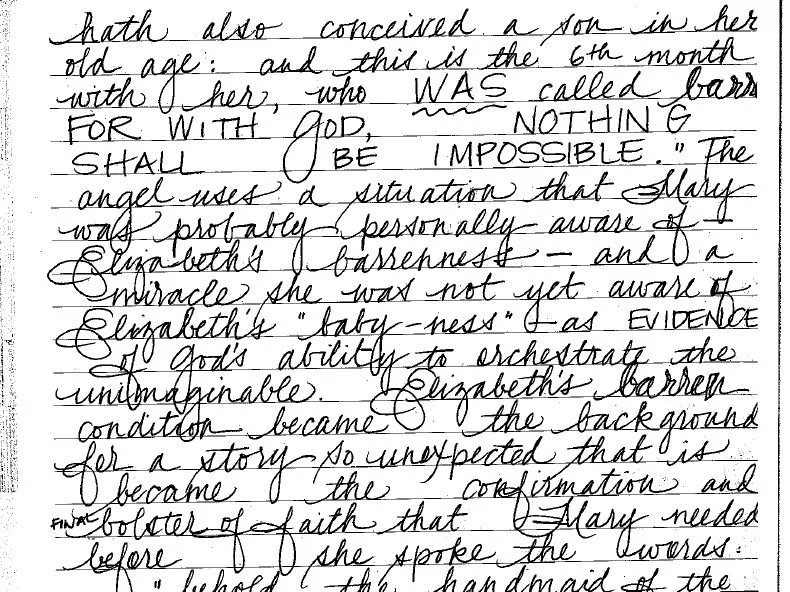 hath also conceived a son in her
old age: and this is the 6th month
with her, who WAS called barr
FOR WITH GOD, NOTHING
SHALL BE IMPOSSIBLE." The
angel uses a situation that Mary
was probably personally aware of -
Elizabeth's barrenness - and a
miracle she was not yet aware of
Elizabeth's "baby-ness" - as EVIDENCE
of God's ability to orchestrate the
unimaginable. Elizabeth's barren
condition became the background
for a story so unexpected that is
became the confirmation and
FINAL bolster of faith that Mary needed
before she spoke the words:
"behold the handmaid of the